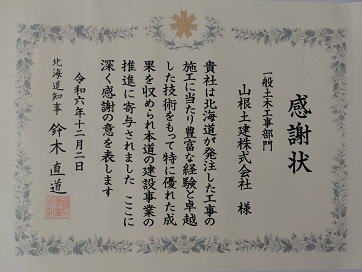 感謝状
一般土木工事部門
山根土建株式会社 様
貴社は北海道が発注した工事の
施工に当たり豊富な経験と卓越
した技術をもって特に優れた成
果を収められ本道の建設事業の
推進に寄与されました ここに
深く感謝の意を表します
令和六年十二月二日
北海道知事 鈴木 直道